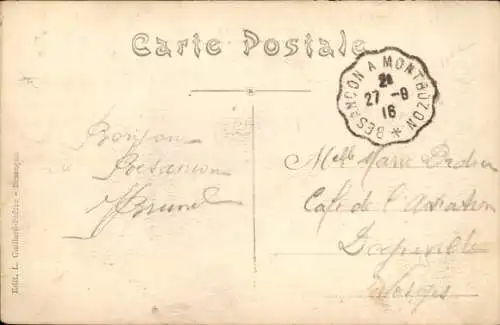 Carte Postale
BESANÇON A MONTBOZON *
2e
27 - 9
16
Bonjour
Besançon
Brunel
Melle Marie
Café de l'Aviation
Vosges
Edit. L. Gaillard-Prêtre - Besançon